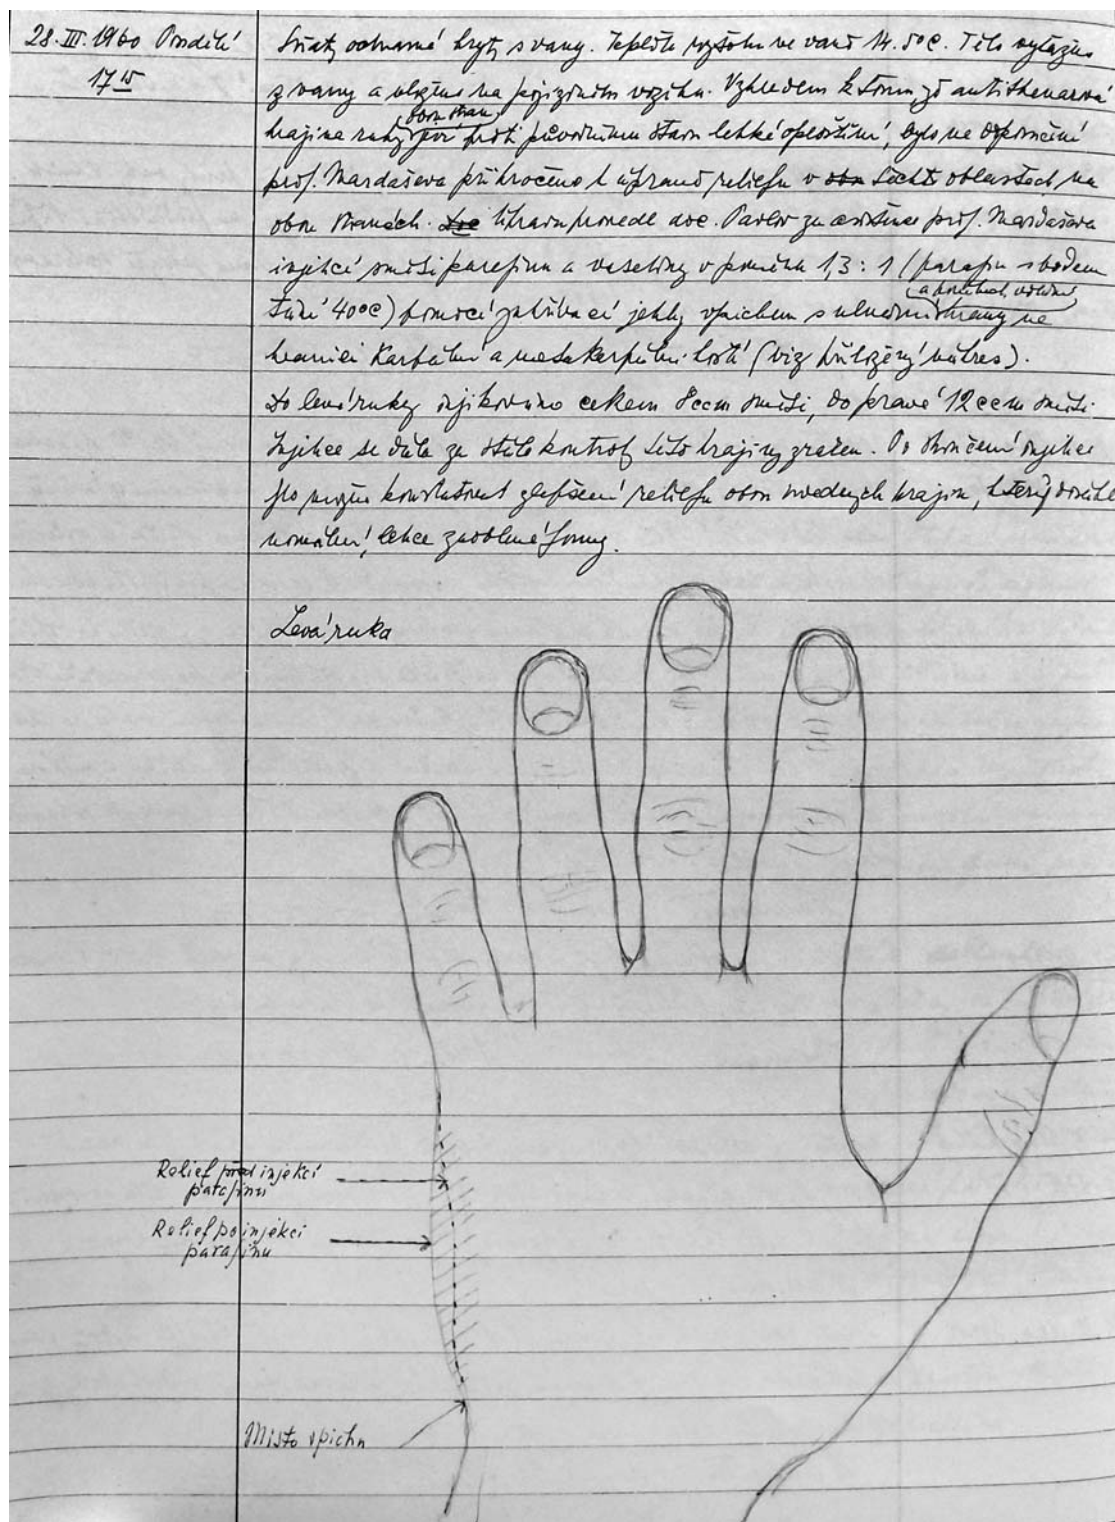 28. III. 1960 Pondělí
17 15
Sňaty ochranné kryty s vany. Teplota roztoku ve vaně 14.5°C. Tělo vytaženo
z vany a uloženo na pojízdném vozíku. Vzhledem k tomu, že antithenarová
obou stran
krajina ruky je proti původnímu stavu lehké oploštění, bylo na doporučení
prof. Mardaševa přikročeno k úpravě reliefu v obou těchto oblastech na
obou stranách. Doc Úpravu provedl doc. Pavlov za asistence prof. Mardaševa
injikcí směsi parafinu a vaseliny v poměru 1,3 : 1 (parafin s bodem
tání 40°C) pomocí jehly vpichem s ulnární strany na
hranici Karpální a metakarpální kostí (viz přiložený nákres).
Do levé ruky injikováno celkem 8ccm směsi, do pravé 12ccm směsi
Injikce se děla za stálé kontroly této krajiny zrakem. Po skončení injikce
bylo možno konstatovat zlepšení reliefu obou uvedených krajin, který dosáhl
normální, lehce zaoblené formy.
Levá ruka
Relief před injekcí
parafinu
Relief po injekci
parafinu
Místo vpichu